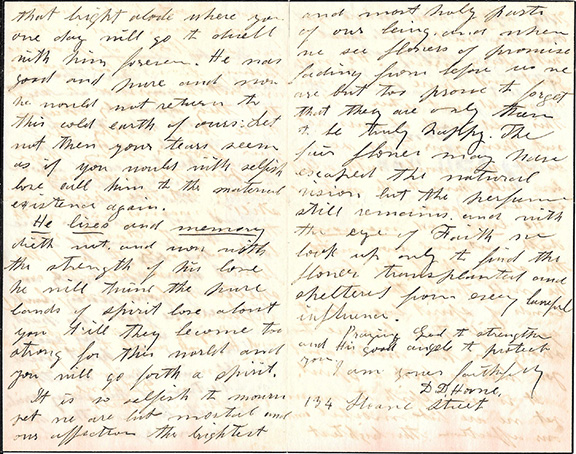 that bright abode where you
one day will go to dwell
with him forever. He was
good and pure and now
he would not return to
this cold earth of ours. Let
not then your tears seem
as if you would with selfish
love call him to the material
existence again.
He lives and memory
dieth not, and now with
the strength of his love
he will twine the pure
bands of spirit love about
you till they become too
strong for this world and
you will go forth a spirit.
It is so selfish to mourn
yet we are but mortal and
our affection the brightest
and most holy parts
of our being, and when
we see flowers of promise
fading from before us we
are but too prone to forget
that they are only then
to be truly happy. The
fair flower may have
escaped the natural
vision but the perfume
still remains, and with
the eye of Faith we
look up only to find the
flower transplanted and
sheltered from every baneful
influence.
Praying God to strengthen
and His good angels to protect
you,
I am yours faithfully
D. D. Home.
134 Sloane Street